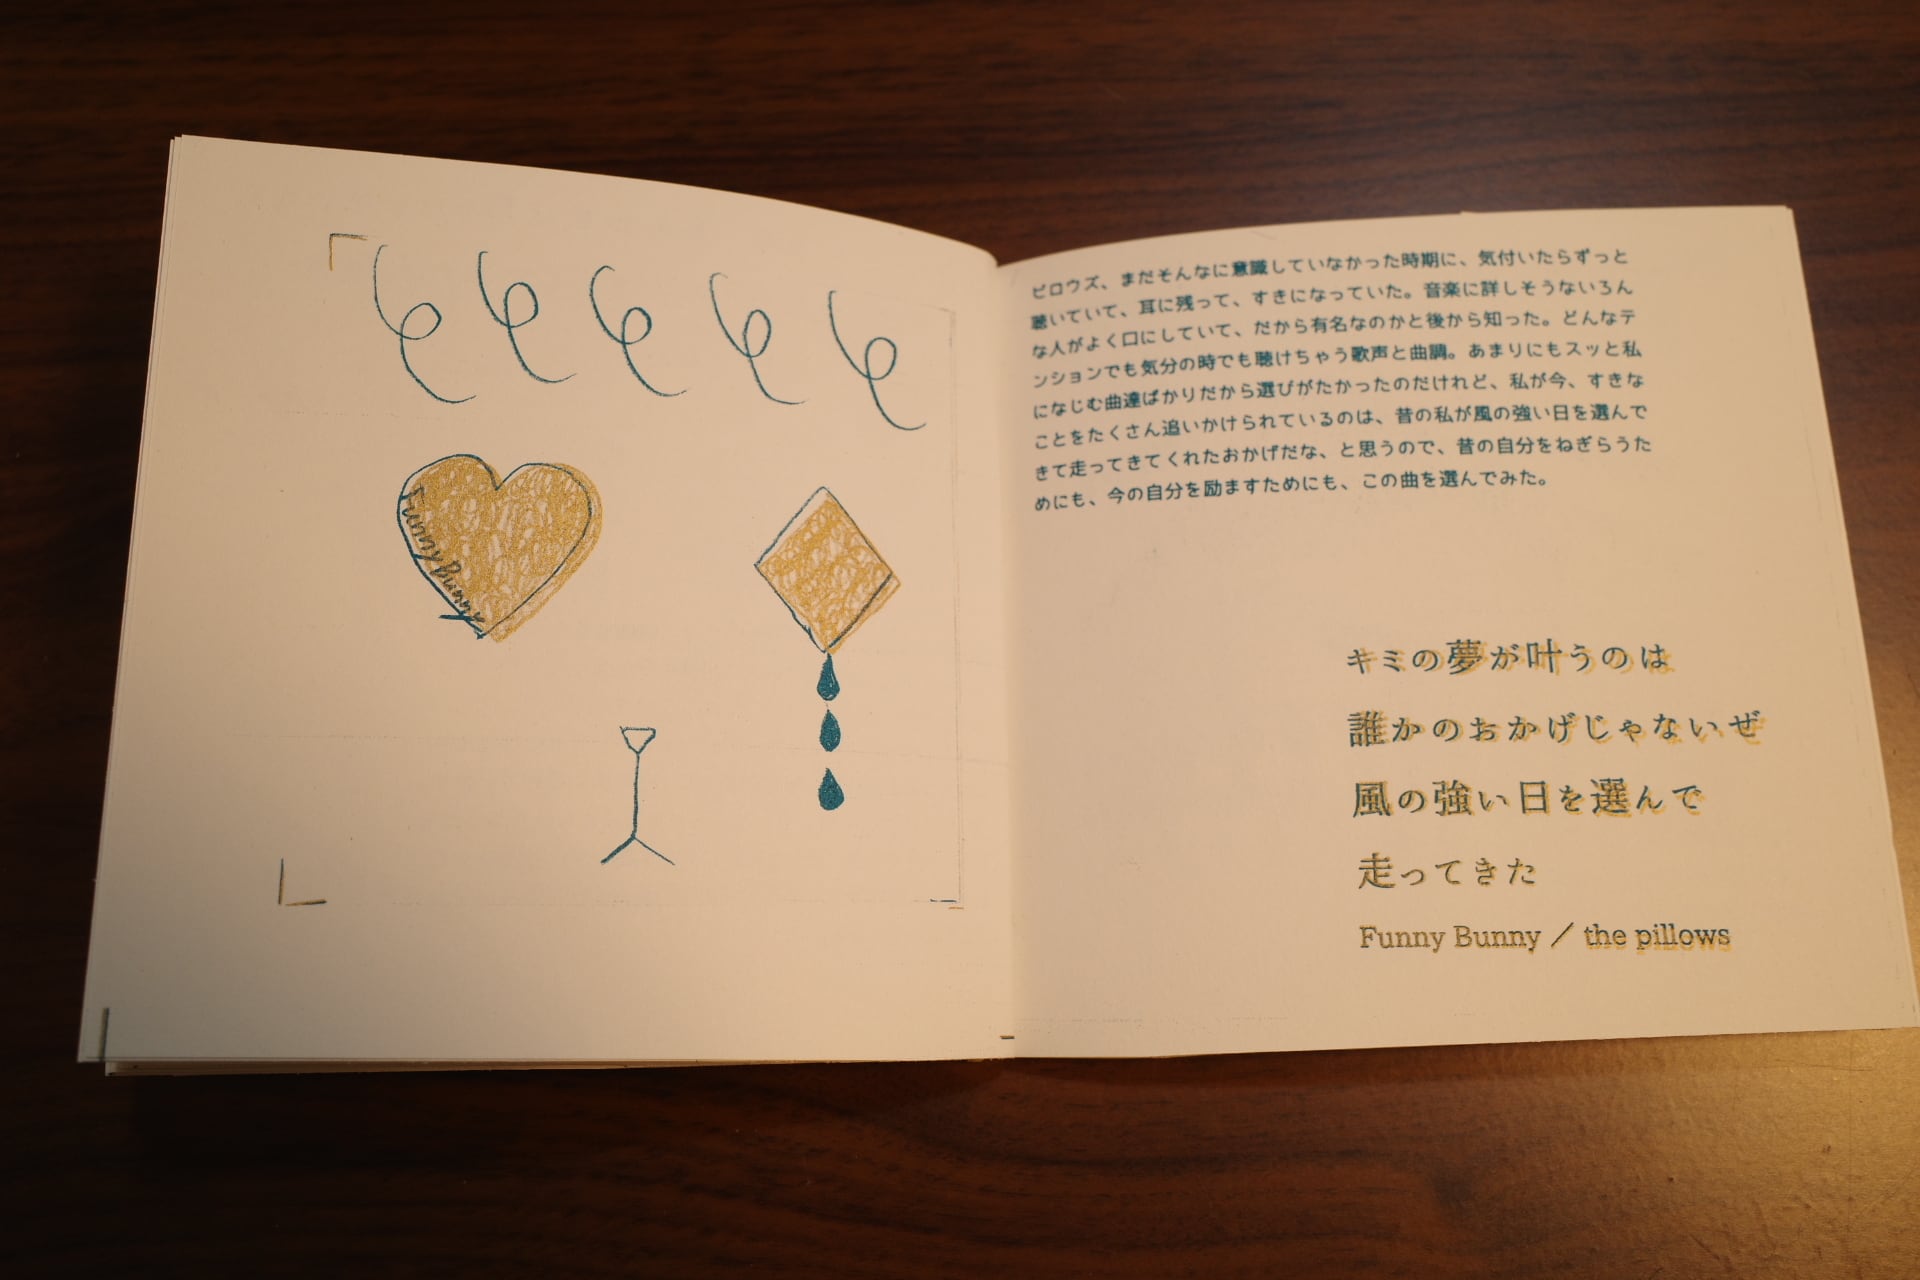 Funny Bunny
ピロウズ、まだそんなに意識していなかった時期に、気付いたらずっと
聴いていて、耳に残って、すきになっていた。音楽に詳しそうないろん
な人がよく口にしていて、だから有名なのかと後から知った。どんなテ
ンションでも気分の時でも聴けちゃう歌声と曲調。あまりにもスッと私
になじむ曲達ばかりだから選びがたかったのだけれど、私が今、すきな
ことをたくさん追いかけられているのは、昔の私が風の強い日を選んで
きて走ってきてくれたおかげだな、と思うので、昔の自分をねぎらうた
めにも、今の自分を励ますためにも、この曲を選んでみた。
キミの夢が叶うのは
誰かのおかげじゃないぜ
風の強い日を選んで
走ってきた
Funny Bunny ／ the pillows